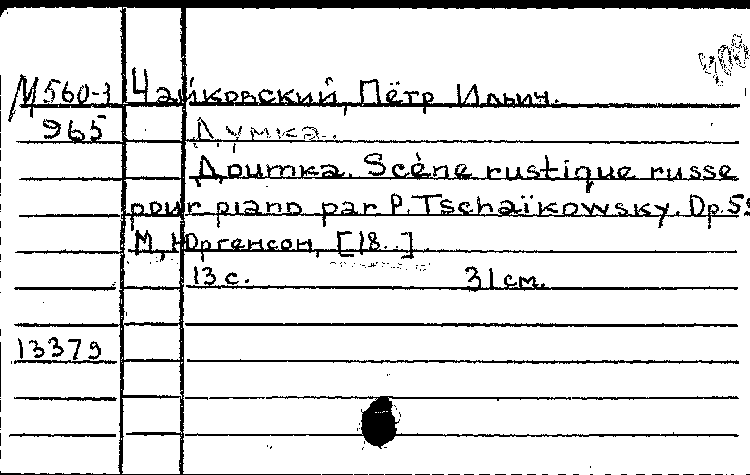 408
М560-1 Чайковский, Пётр Ильич.
965 Думка.
Доumka. Scène rustique russe
pour piano par P. Tschaïkowsky. Op. 59
М., Юргенсон, [18..]
13 с. 31 см.
13379